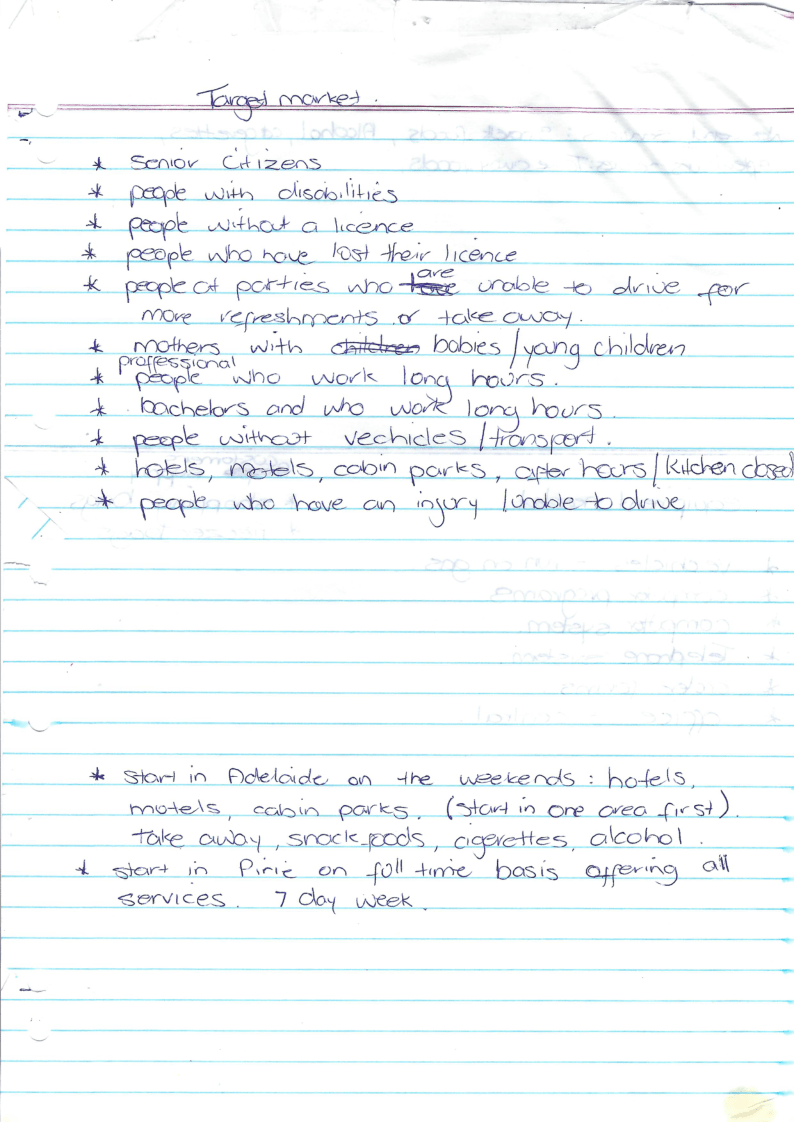 Target market.
* Senior Citizens
* people with disabilities
* people without a licence
* people who have lost their licence
* people at parties who are unable to drive for
more refreshments or take away.
* mothers with children babies / young children
proffessional
* people who work long hours.
* bachelors and who work long hours.
* people without vechicles / transport.
* hotels, motels, cabin parks, after hours / kitchen closed
* people who have an injury / unable to drive
* start in Adelaide on the weekends : hotels,
motels, cabin parks. (start in one area first).
take away, snack foods, cigerettes, alcohol.
* start in Pirie on full time basis offering all
services. 7 day week.